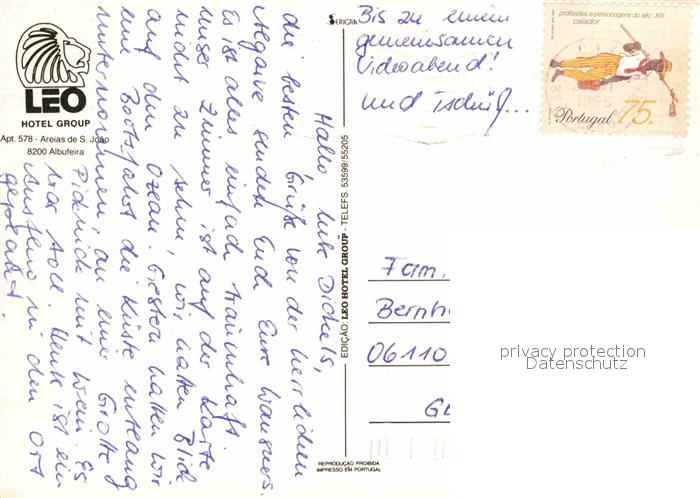 LEO
HOTEL GROUP
Apt. 578 - Areias de S. João
8200 Albufeira
Hallo liebe Dickels,
die besten Grüße von der herrlichen
Algarve senden Euch Eure
Es ist alles einfach traumhaft
unser Zimmer ist auf der Karte
nicht zu sehen, wir haben Blick
auf den Ozean. Gestern haben wir
eine Bootsfahrt die Küste entlang
unternommen, an einer Grotte
Picknick mit Wein. Es
war toll. Heute ist ein
Ausflug in den Ort
geplant.
SERIGRA
EDIÇÃO: LEO HOTEL GROUP - TELEFS. 53599/55205
REPRODUÇÃO PROIBIDA
IMPRESSO EM PORTUGAL
Bis zu einem
gemeinsamen
Videoabend!
und Tschüß...
profissões e personagens do séc. XIX
caiador
Portugal 75.
Fam.
Bernh
06110
privacy protection
Datenschutz